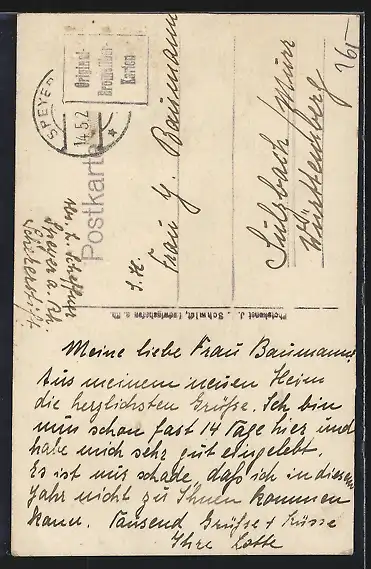 SPEYER
14.5.2
Original-
Bromsilber-
Karten
Postkarte
16,-
S. H.
Frau J. Baumann
Sulzbach/Murr
Württemberg
Speyer a. Rh.
Photokunst J. Schmidt, Ludwigshafen a. Rh.
Meine liebe Frau Baumann,
Aus meinem neuen Heim
die herzlichsten Grüsse. Ich bin
nun schon fast 14 Tage hier und
habe mich sehr gut eingelebt.
Es ist nur schade, daß ich in diesem
Jahr nicht zu Ihnen kommen
kann. Tausend Grüsse + Küsse
Ihre Lotte